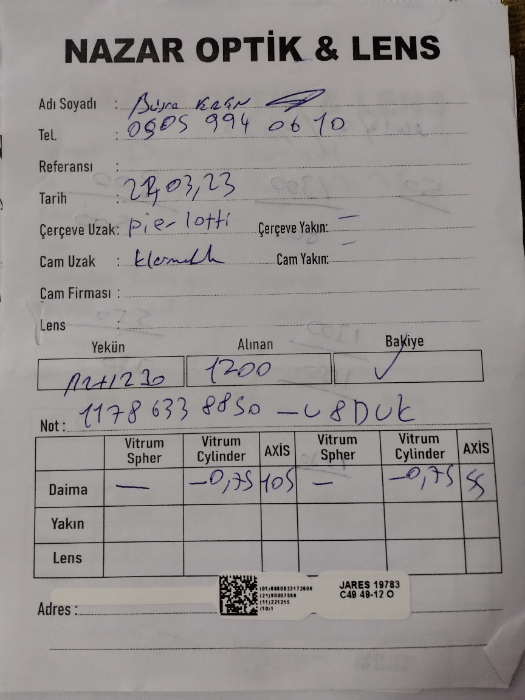 NAZAR OPTİK & LENS
Adı Soyadı : Büşra
Tel. : 0505 994 06 10
Referansı :
Tarih : 21,03,23
Çerçeve Uzak: pierlotti Çerçeve Yakın: —
Cam Uzak : Cam Yakın: —
Cam Firması :
Lens :
Yekün Alınan Bakiye
1200 ✓
Not : 1178 633 8850 – U8DUK
Vitrum Spher Vitrum Cylinder AXİS Vitrum Spher Vitrum Cylinder AXİS
Daima — -0,75 105 — -0,75 55
Yakın
Lens
Adres :
JARES 19783
C49 49-12 O